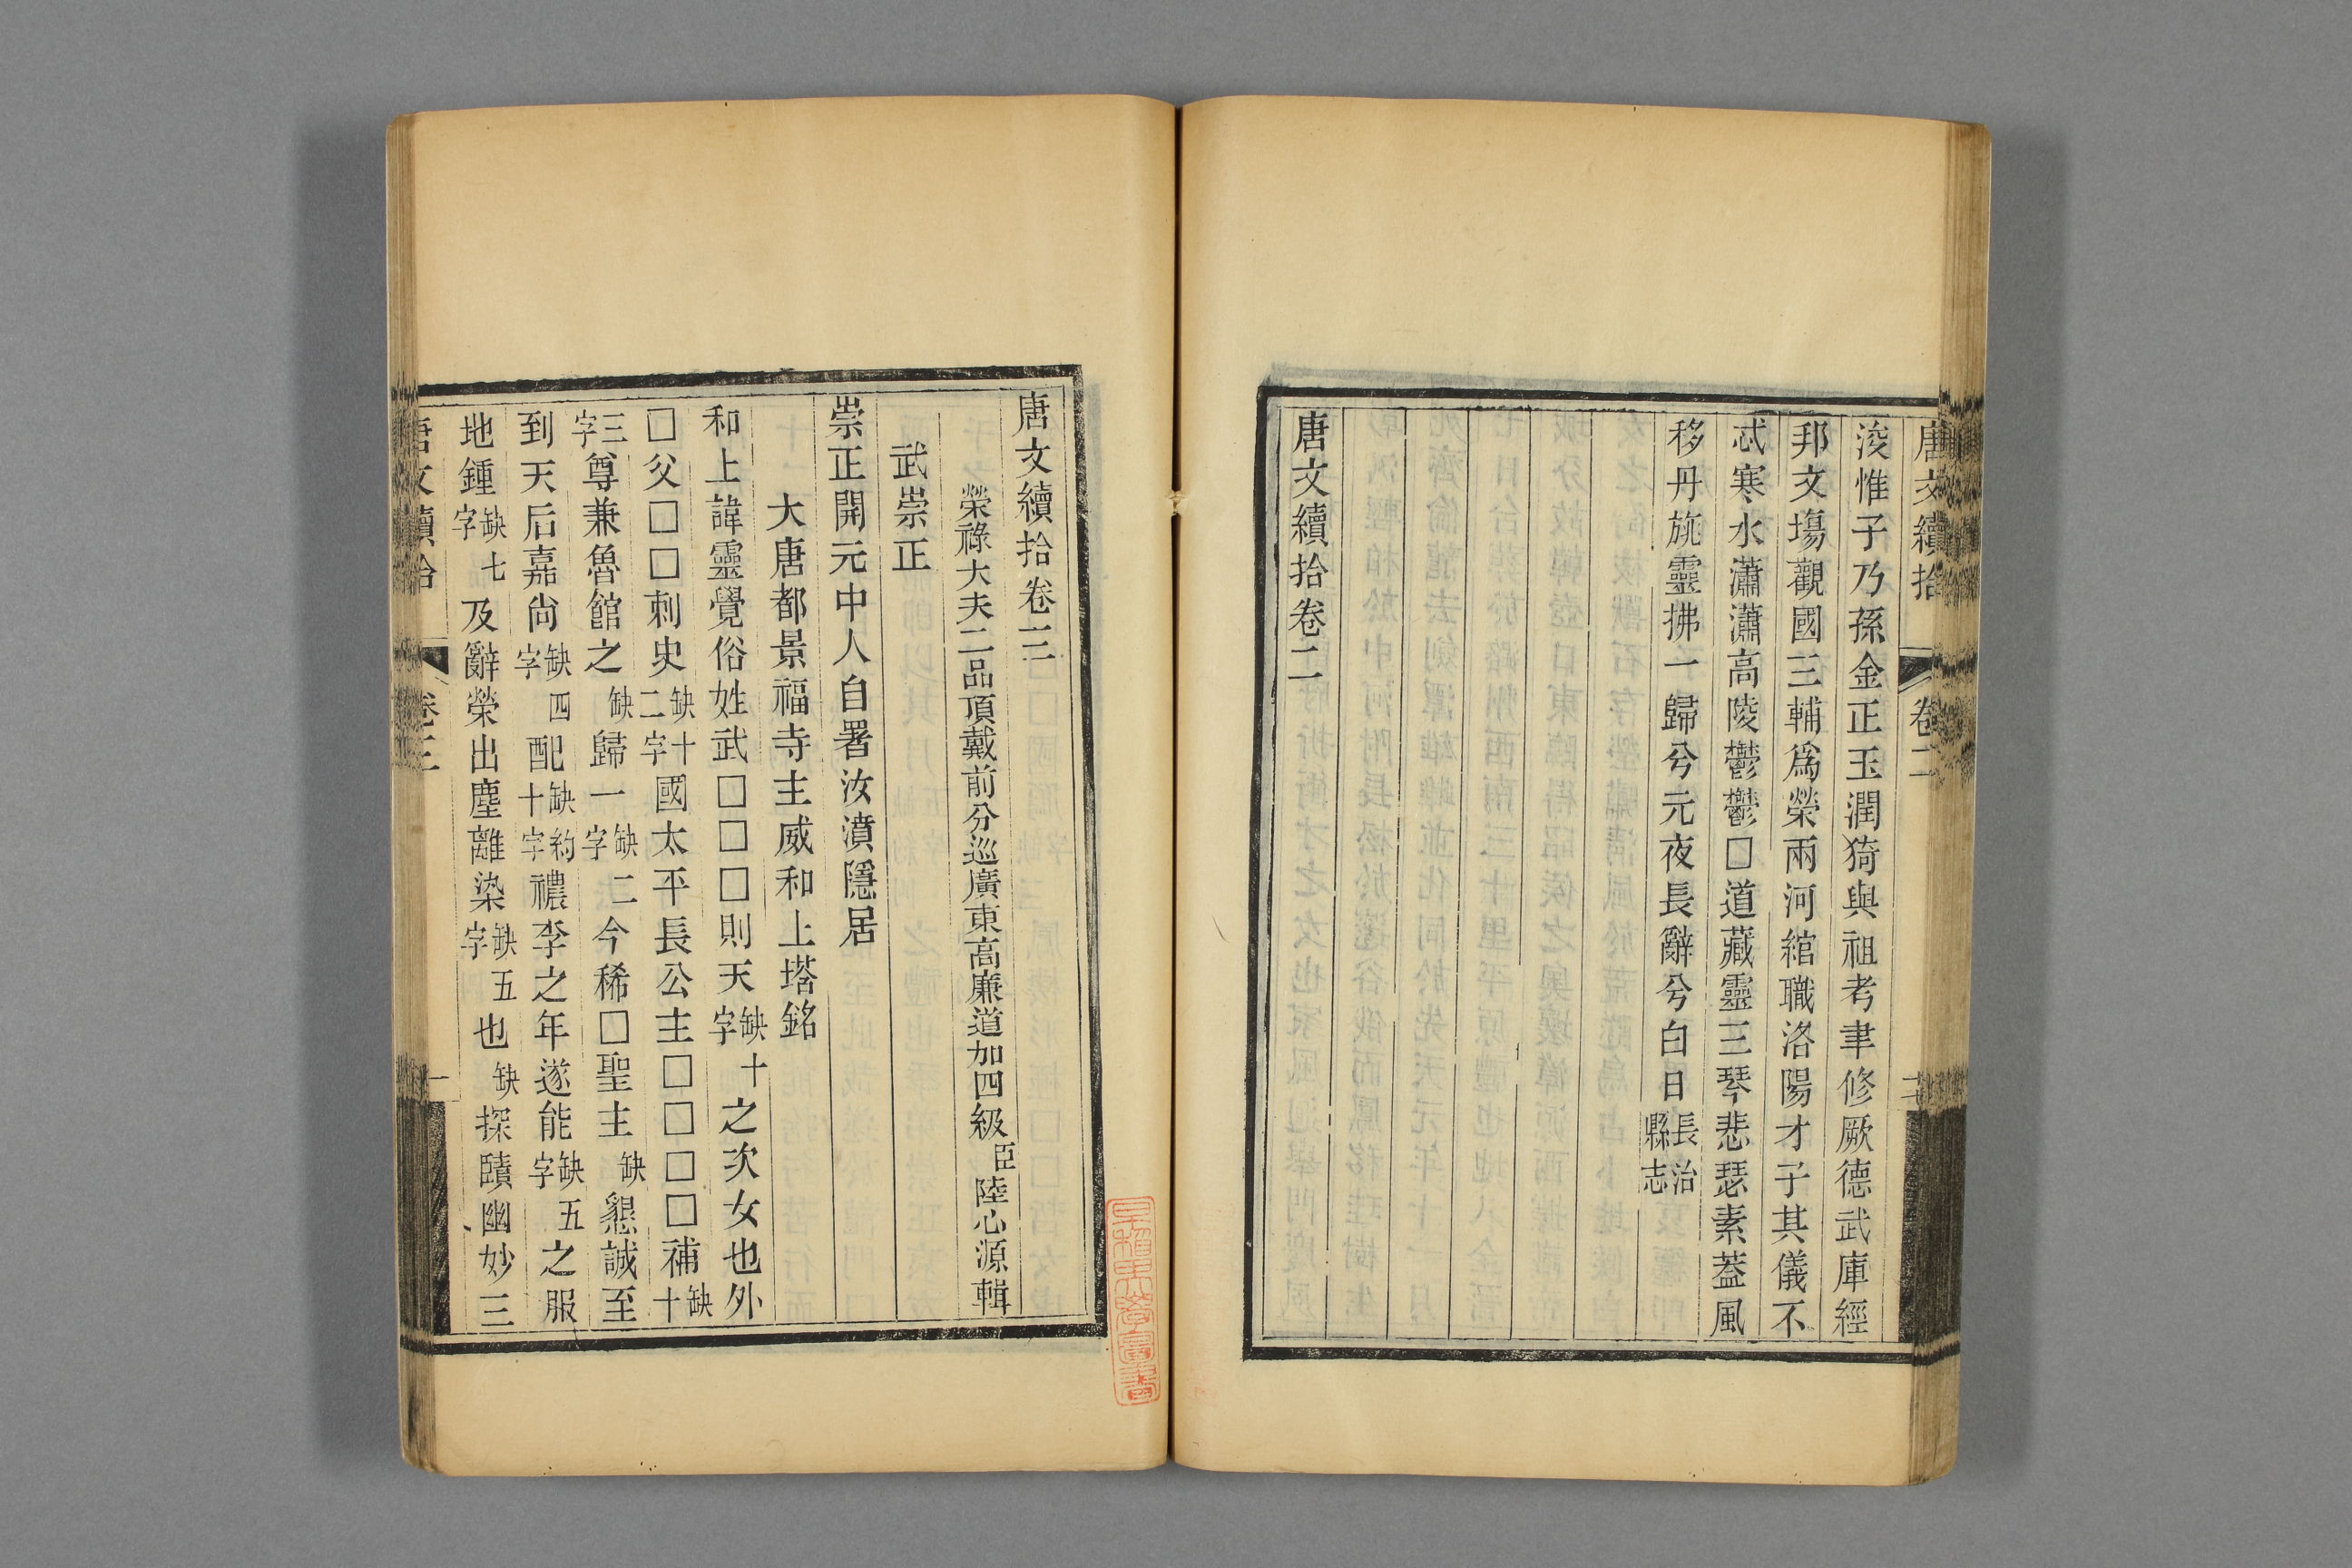 唐文續拾 卷二
浚惟子乃孫金正玉潤猗與祖考聿修厥德武庫經
邦文場觀國三輔爲榮兩河綰職洛陽才子其儀不
忒寒水瀟瀟高陵鬱鬱□道藏靈三琴悲瑟素葢風
移丹旐靈拂一歸兮元夜長辭兮白日長治縣志
唐文續拾卷二
唐文續拾卷三
榮祿大夫二品頂戴前分巡廣東高廉道加四級臣陸心源輯
武崇正
崇正開元中人自署汝濆隱居
大唐都景福寺主威和上塔銘
和上諱靈覺俗姓武□□□則天缺十字之次女也外
□父□□刺史缺十二字國太平長公主□□□□補缺十
三字尊兼魯館之缺歸一缺二字今稀□聖主缺懇誠至
到天后嘉尙缺四字配缺約十字禯李之年遂能缺五字之服
地鍾缺七字及辭榮出塵離染缺五字也缺探賾幽妙三
唐文續拾 卷三 一